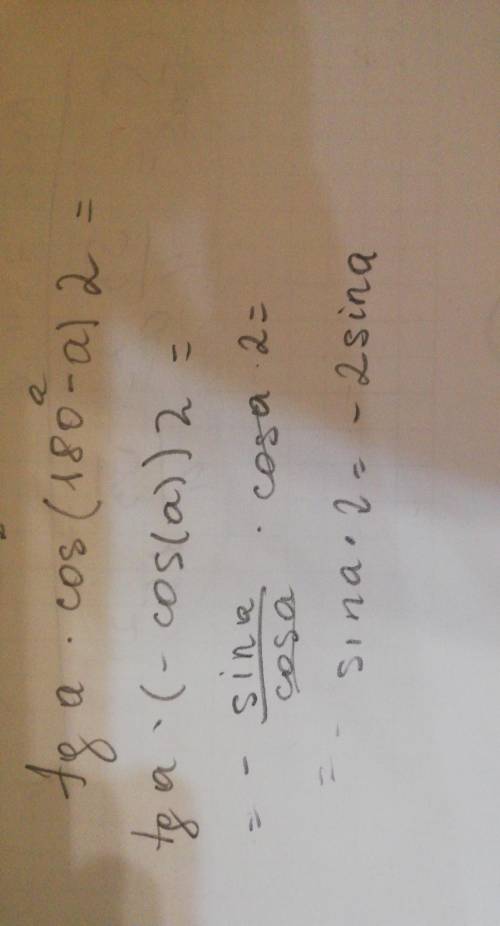 tg a · cos(180°-a) 2 =
tg a · (- cos(a)) 2 =
= - sin a / cos a · cos a · 2 =
= - sin a · 2 = - 2 sin a